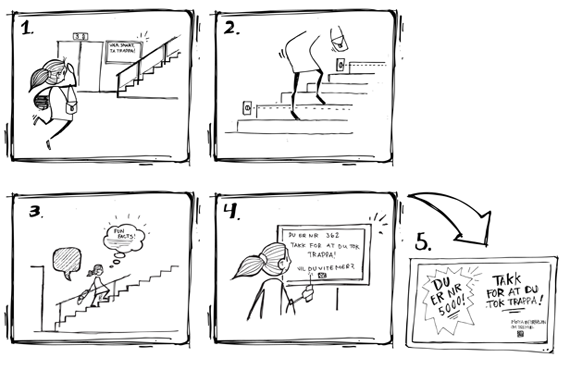 1.
VÆR SMART,
TA TRAPPA!
2.
3.
FUN
FACTS!
4.
DU ER NR 362
TAKK FOR AT DU TOK
TRAPPA!
VIL DU VITE MER?
5.
DU
ER NR
5000!
TAKK
FOR AT DU
TOK TRAPPA!